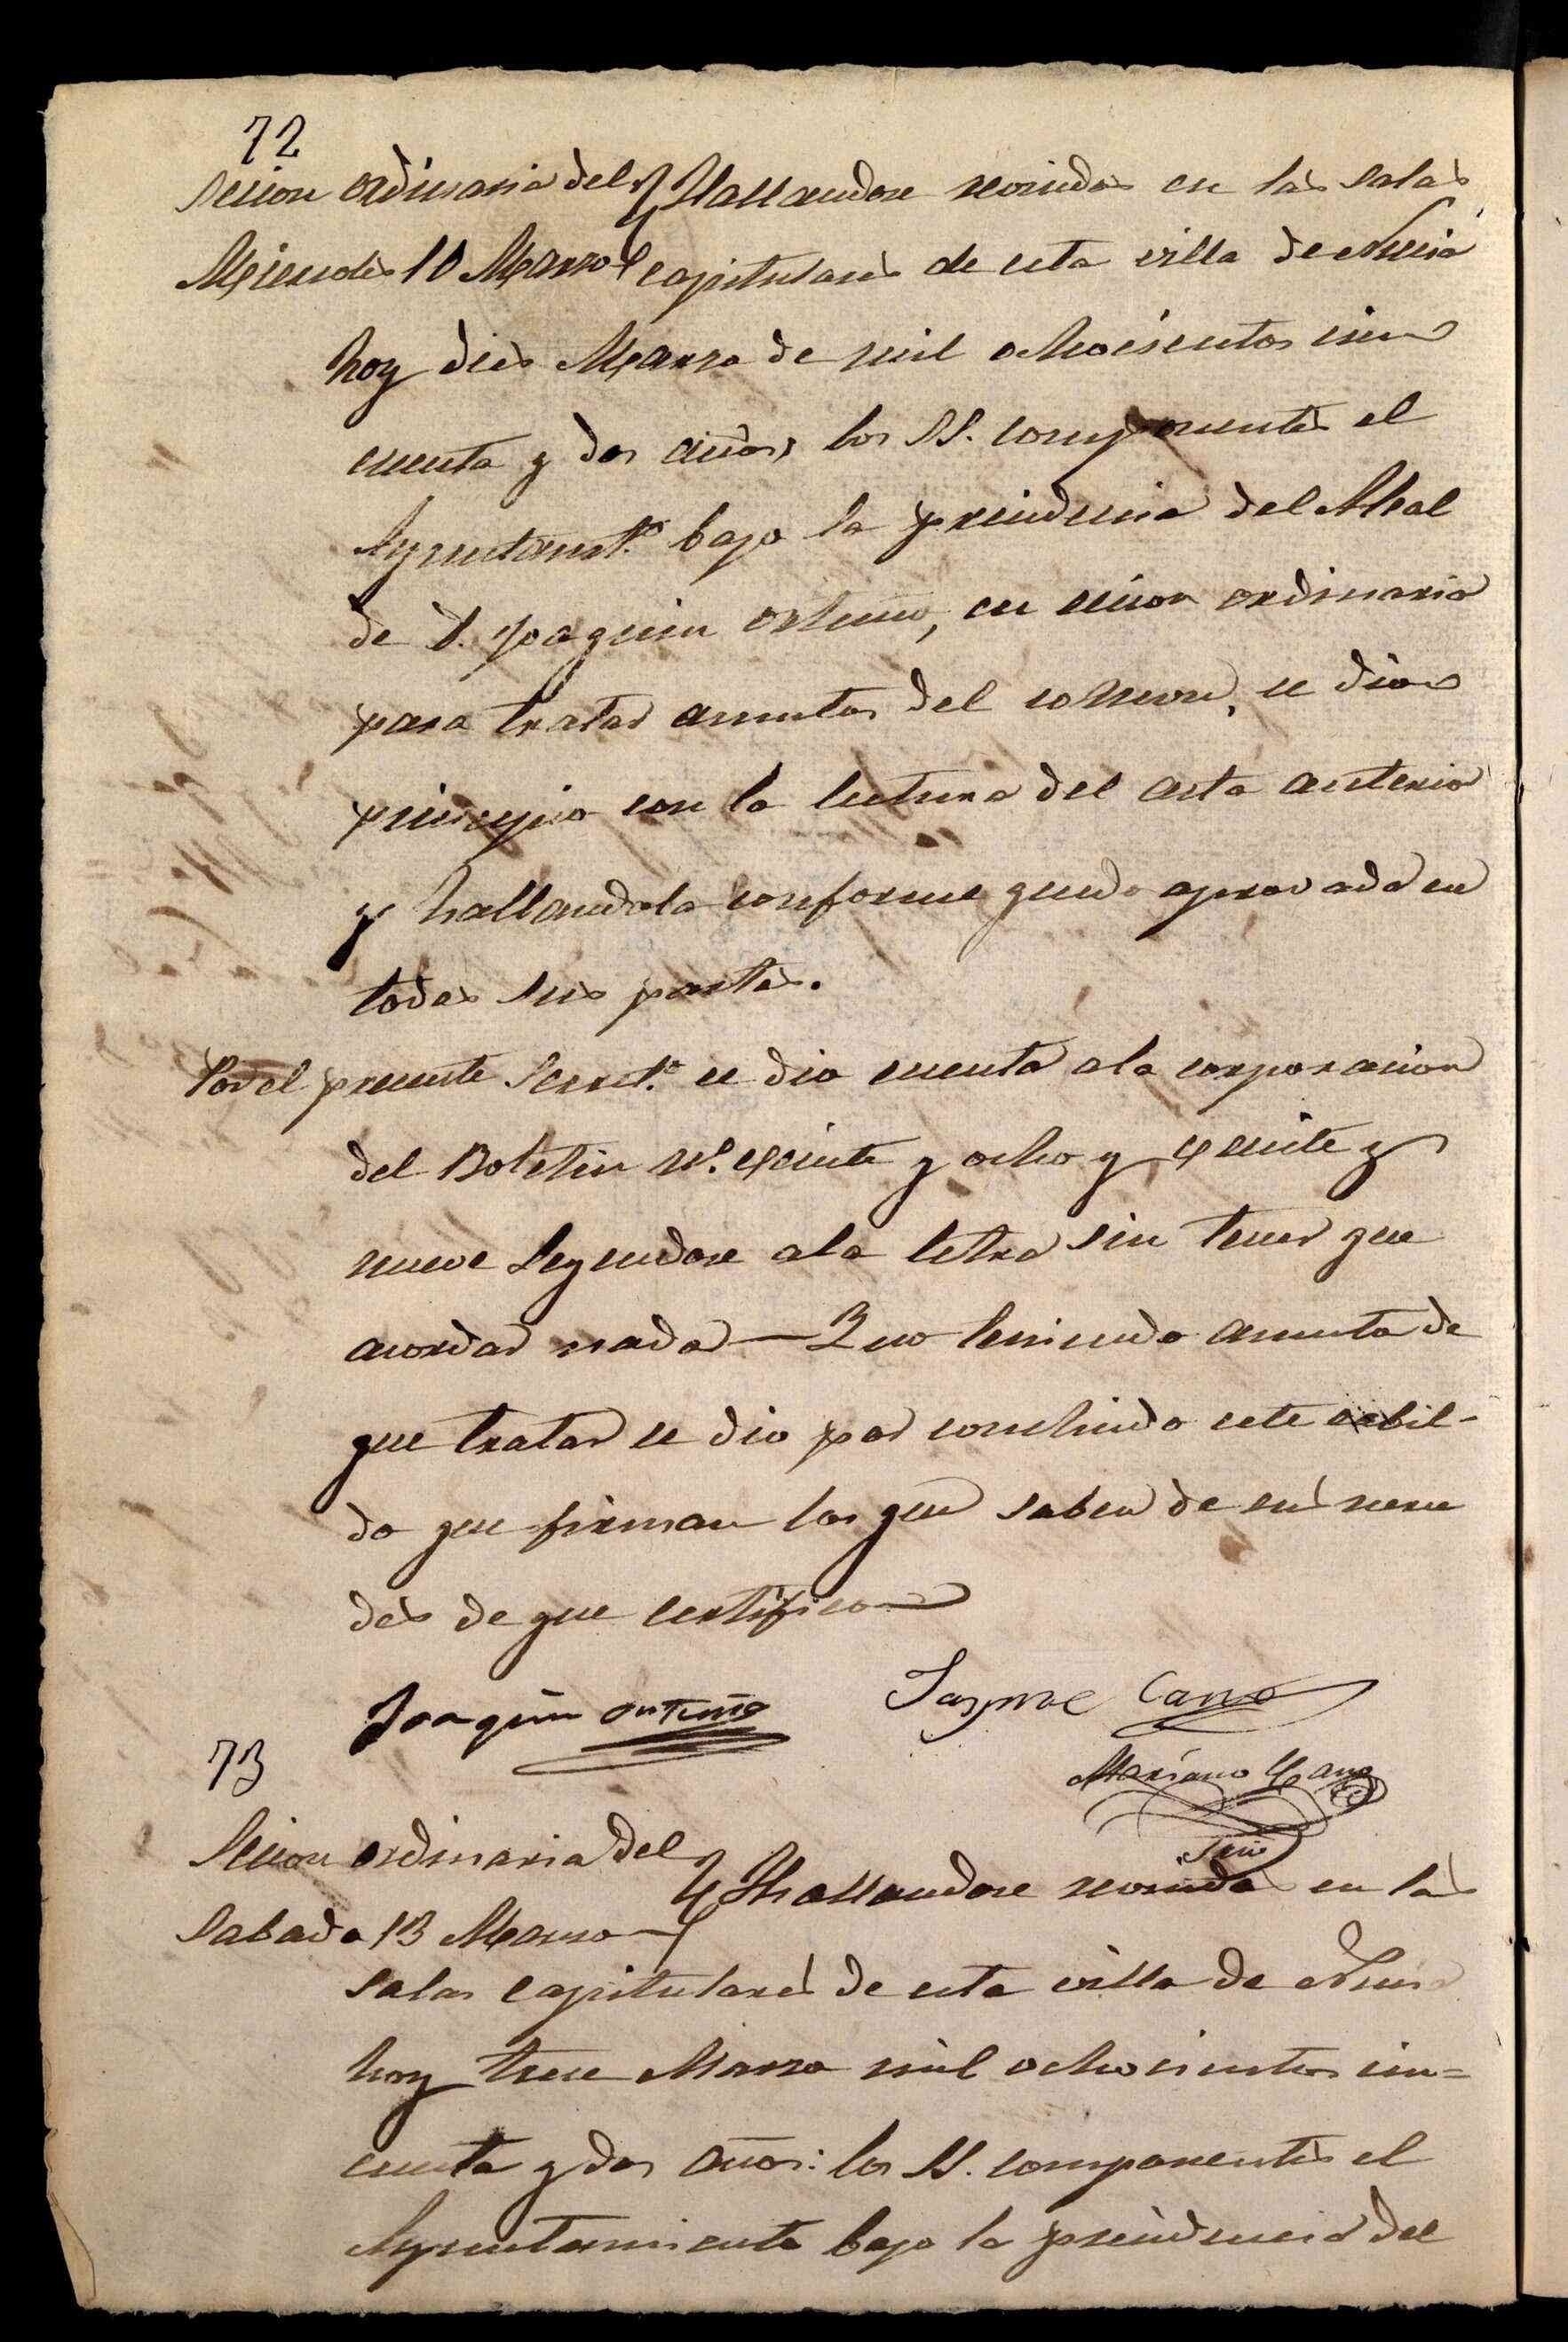 72
Secion ordinaria del Hallandose reonidos en las salas
Miercoles 10 Marzo capitulares de esta villa de Nucia
hoy dies Marzo de mil ochocientos cin
cuenta y dos años, los SS. componentes el
Ayuntamt.º bajo la precidencia del Alcal
de D. Joaquin Ortuño, en cecion ordinaria
para tratar asuntos del comun, se dio
principio con la lectura del acta anterior
y hallandola conforme quedo aprovada en
todas sus partes.
Por el precente Secret.º se dio cuenta a la corporacion
del Boletin nº. veinte y ocho y veinte y
nueve leyendose a la letra sin tener que
acordar nada — Y no teniendo asunto de
que tratar se dio por concluido este cabil-
do que firman los que saben de sus merce
des de que certifico
Joaquin Ortuño Jayme Cano
73 Mariano Cano
Srio
Secion ordinaria del Hallandose reonidos en las
Sabado 13 Marzo
salas capitulares de esta villa de Nucia
hoy trece Marzo mil ochocientos cin=
cuenta y dos años: los SS. componentes el
Ayuntamiento bajo la precidencia del